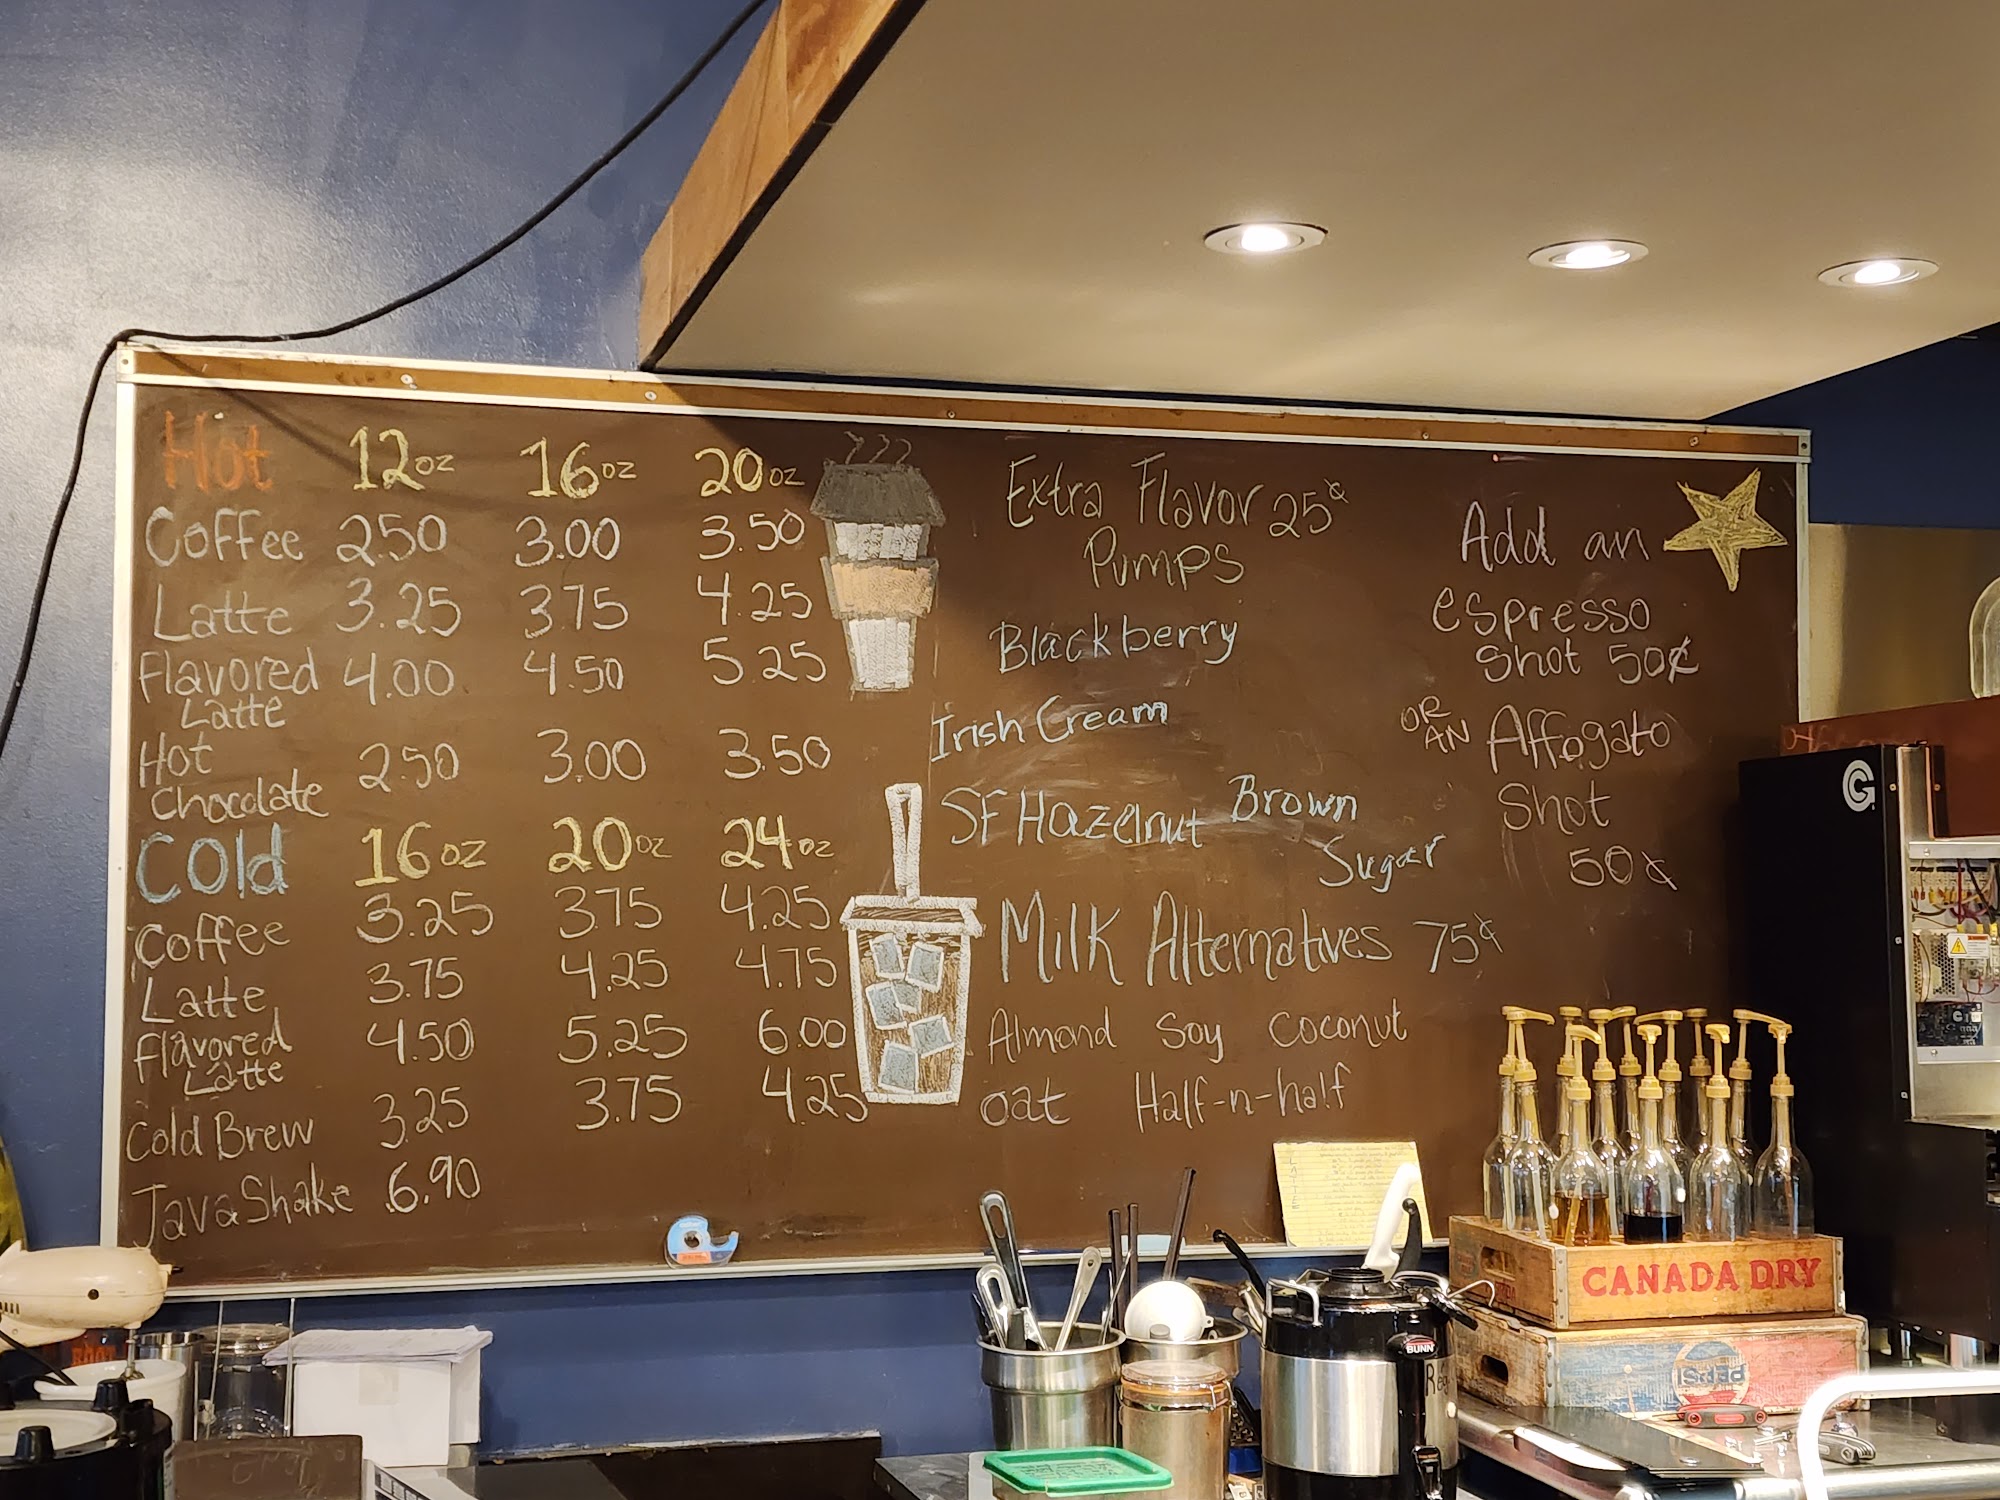 Hot 12oz 16oz 20oz
Coffee 2.50 3.00 3.50
Latte 3.25 3.75 4.25
Flavored 4.00 4.50 5.25
Latte
Hot 2.50 3.00 3.50
Chocolate
Cold 16oz 20oz 24oz
Coffee 3.25 3.75 4.25
Latte 3.75 4.25 4.75
Flavored 4.50 5.25 6.00
Latte
Cold Brew 3.25 3.75 4.25
Java Shake 6.90
Extra Flavor 25¢
Pumps
Blackberry
Irish Cream
SF Hazelnut Brown
Sugar
Milk Alternatives 75¢
Almond Soy Coconut
oat Half-n-half
Add an
espresso
shot 50¢
OR
AN Affogato
Shot
50¢
LATTE
CANADA DRY
PEPSI
BUNN
G